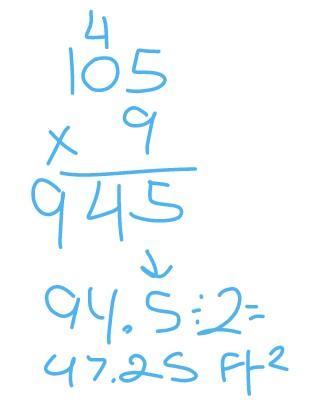 4
105
× 9
945
↓
94.5÷2=
47.25 Ft²